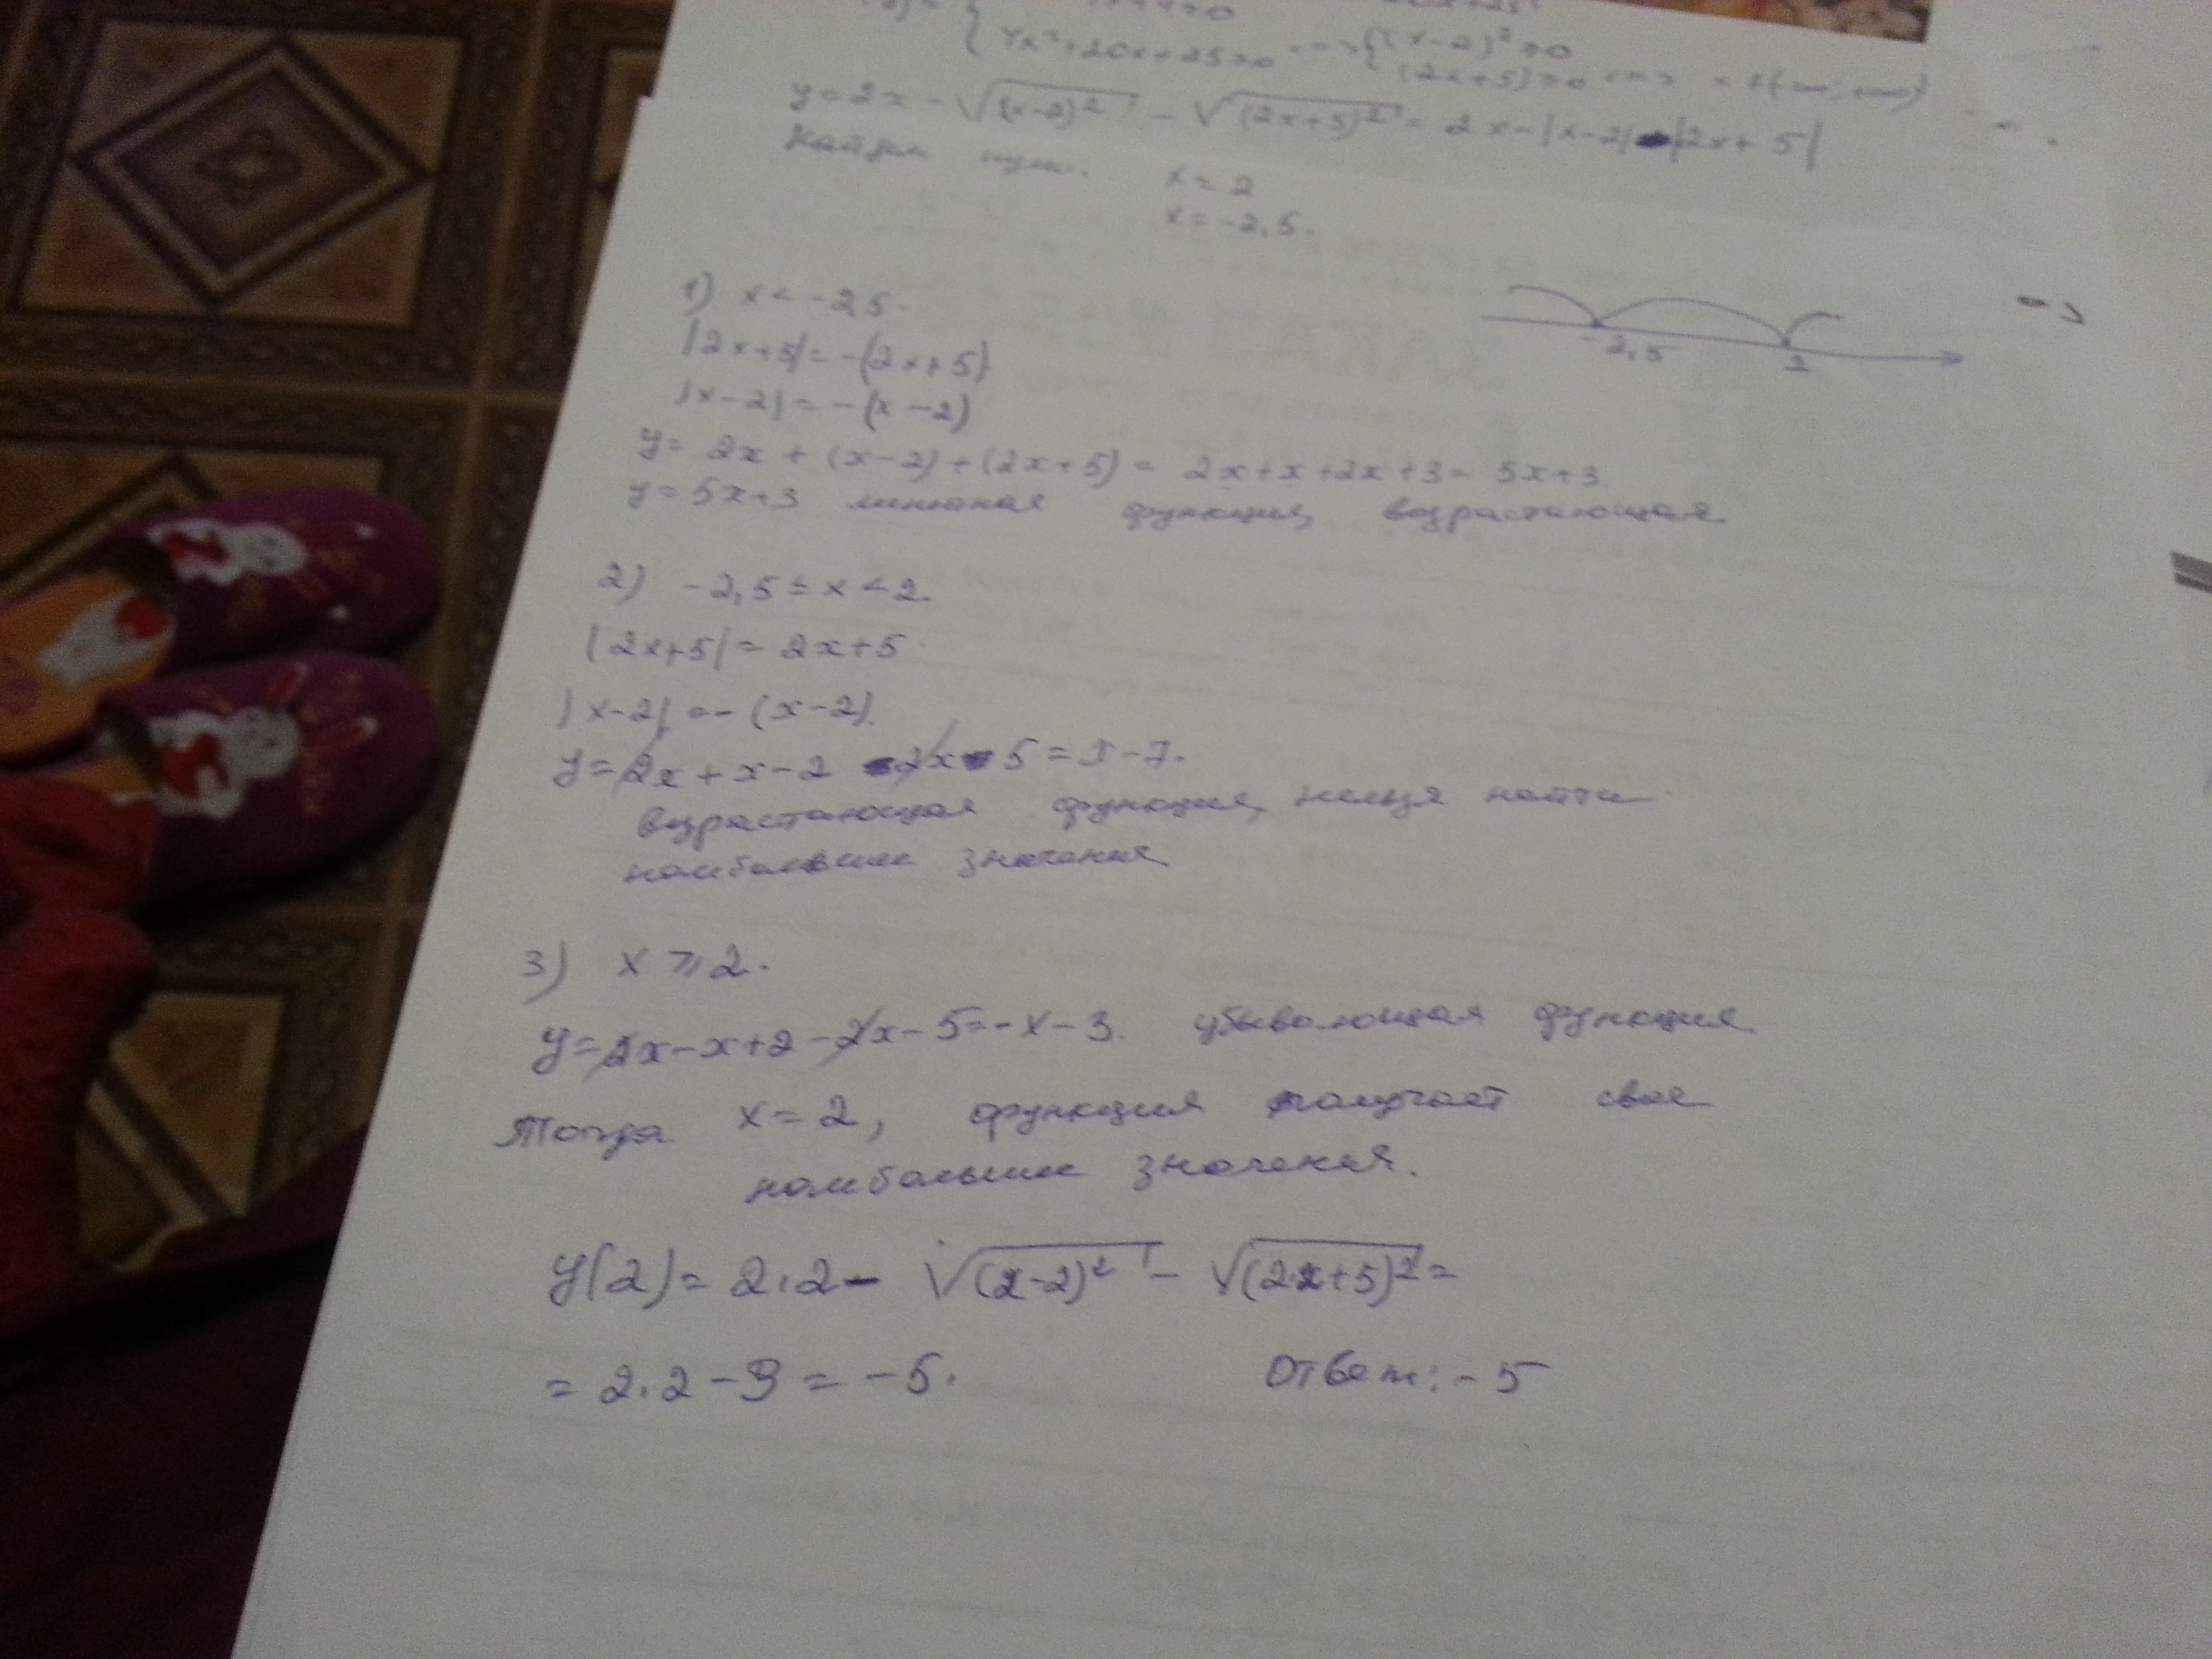 4x²+20x+25≥0 <=> {(x-2)²≥0
(2x+5)≥0 <=>
y=2x-√(x-2)² - √(2x+5)² = 2x-|x-2|-|2x+5|
Найдем нули: x=2
x=-2,5.
1) x<-2,5.
-2,5 2
|2x+5|=-(2x+5)
|x-2|=-(x-2)
y= 2x + (x-2)+(2x+5) = 2x+x+2x+3= 5x+3.
y=5x+3 линейная функция, возрастающая
2) -2,5≤x<2.
|2x+5|= 2x+5.
|x-2|=-(x-2).
y=2x+x-2-2x-5=x-7.
возрастающая функция, нельзя найти
наибольшее значения
3) x≥2.
y=2x-x+2-2x-5=-x-3. убывающая функция
Тогда x=2, функция получает свое
наибольшее значения.
y(2)= 2·2- √(2-2)² - √(2·2+5)² =
= 2·2-9 = -5. Ответ: -5